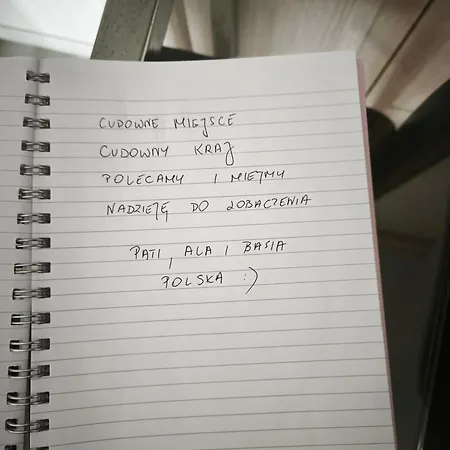 CUDOWNE MIEJSCE
CUDOWNY KRAJ
POLECAMY I MIEJMY
NADZIEJĘ DO ZOBACZENIA
PATI, ALA I BASIA
POLSKA :)